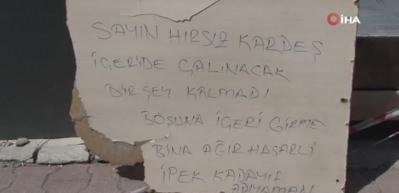 İHA
SAYIN HIRSIZ KARDEŞ
İÇERİDE ÇALINACAK
BİR ŞEY KALMADI
BOŞUNA İÇERİ GİRME
BİNA AĞIR HASARLI
İPEK KADAYIF
ADIYAMAN